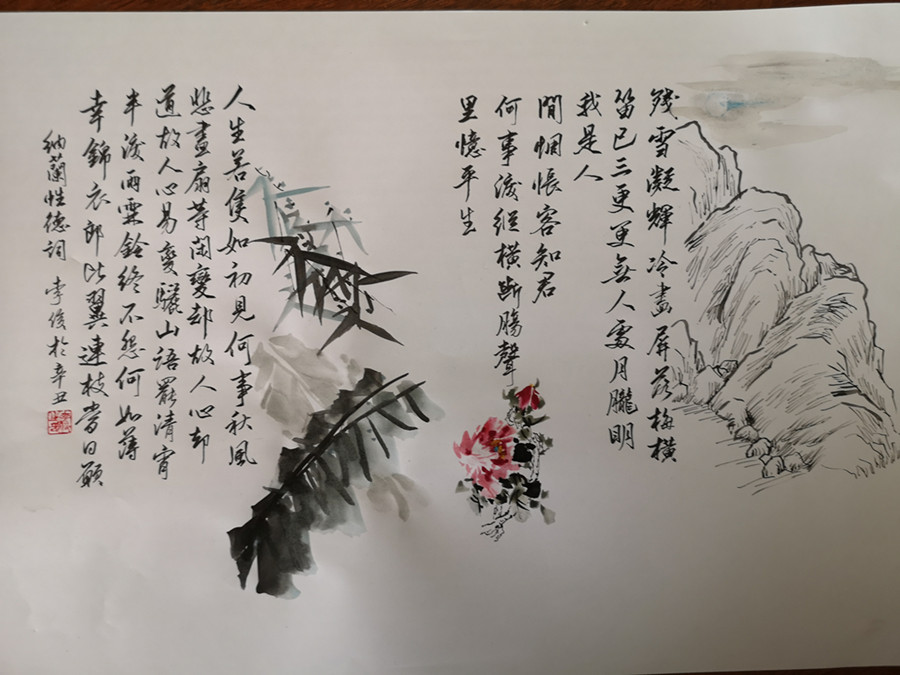 殘雪凝輝冷畫屏落梅橫
笛已三更更無人處月朧明
我是人
間惆悵客知君
何事淚縱橫斷腸聲
里憶平生
人生若隻如初見何事秋風
悲畫扇等閑變却故人心却
道故人心易變驪山語罷清宵
半淚雨霖鈴終不怨何如薄
幸錦衣郎比翼連枝當日願
納蘭性德詞 李俊於辛丑